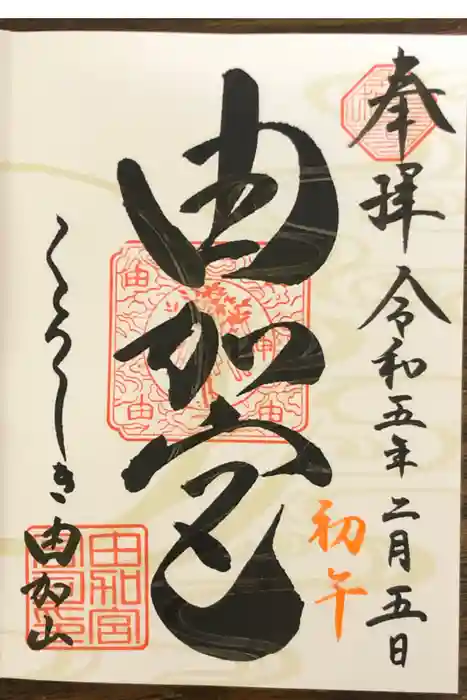 奉拝
令和五年二月五日
初午
由加宮
くらしき
由加山
由
由
由
由加宮